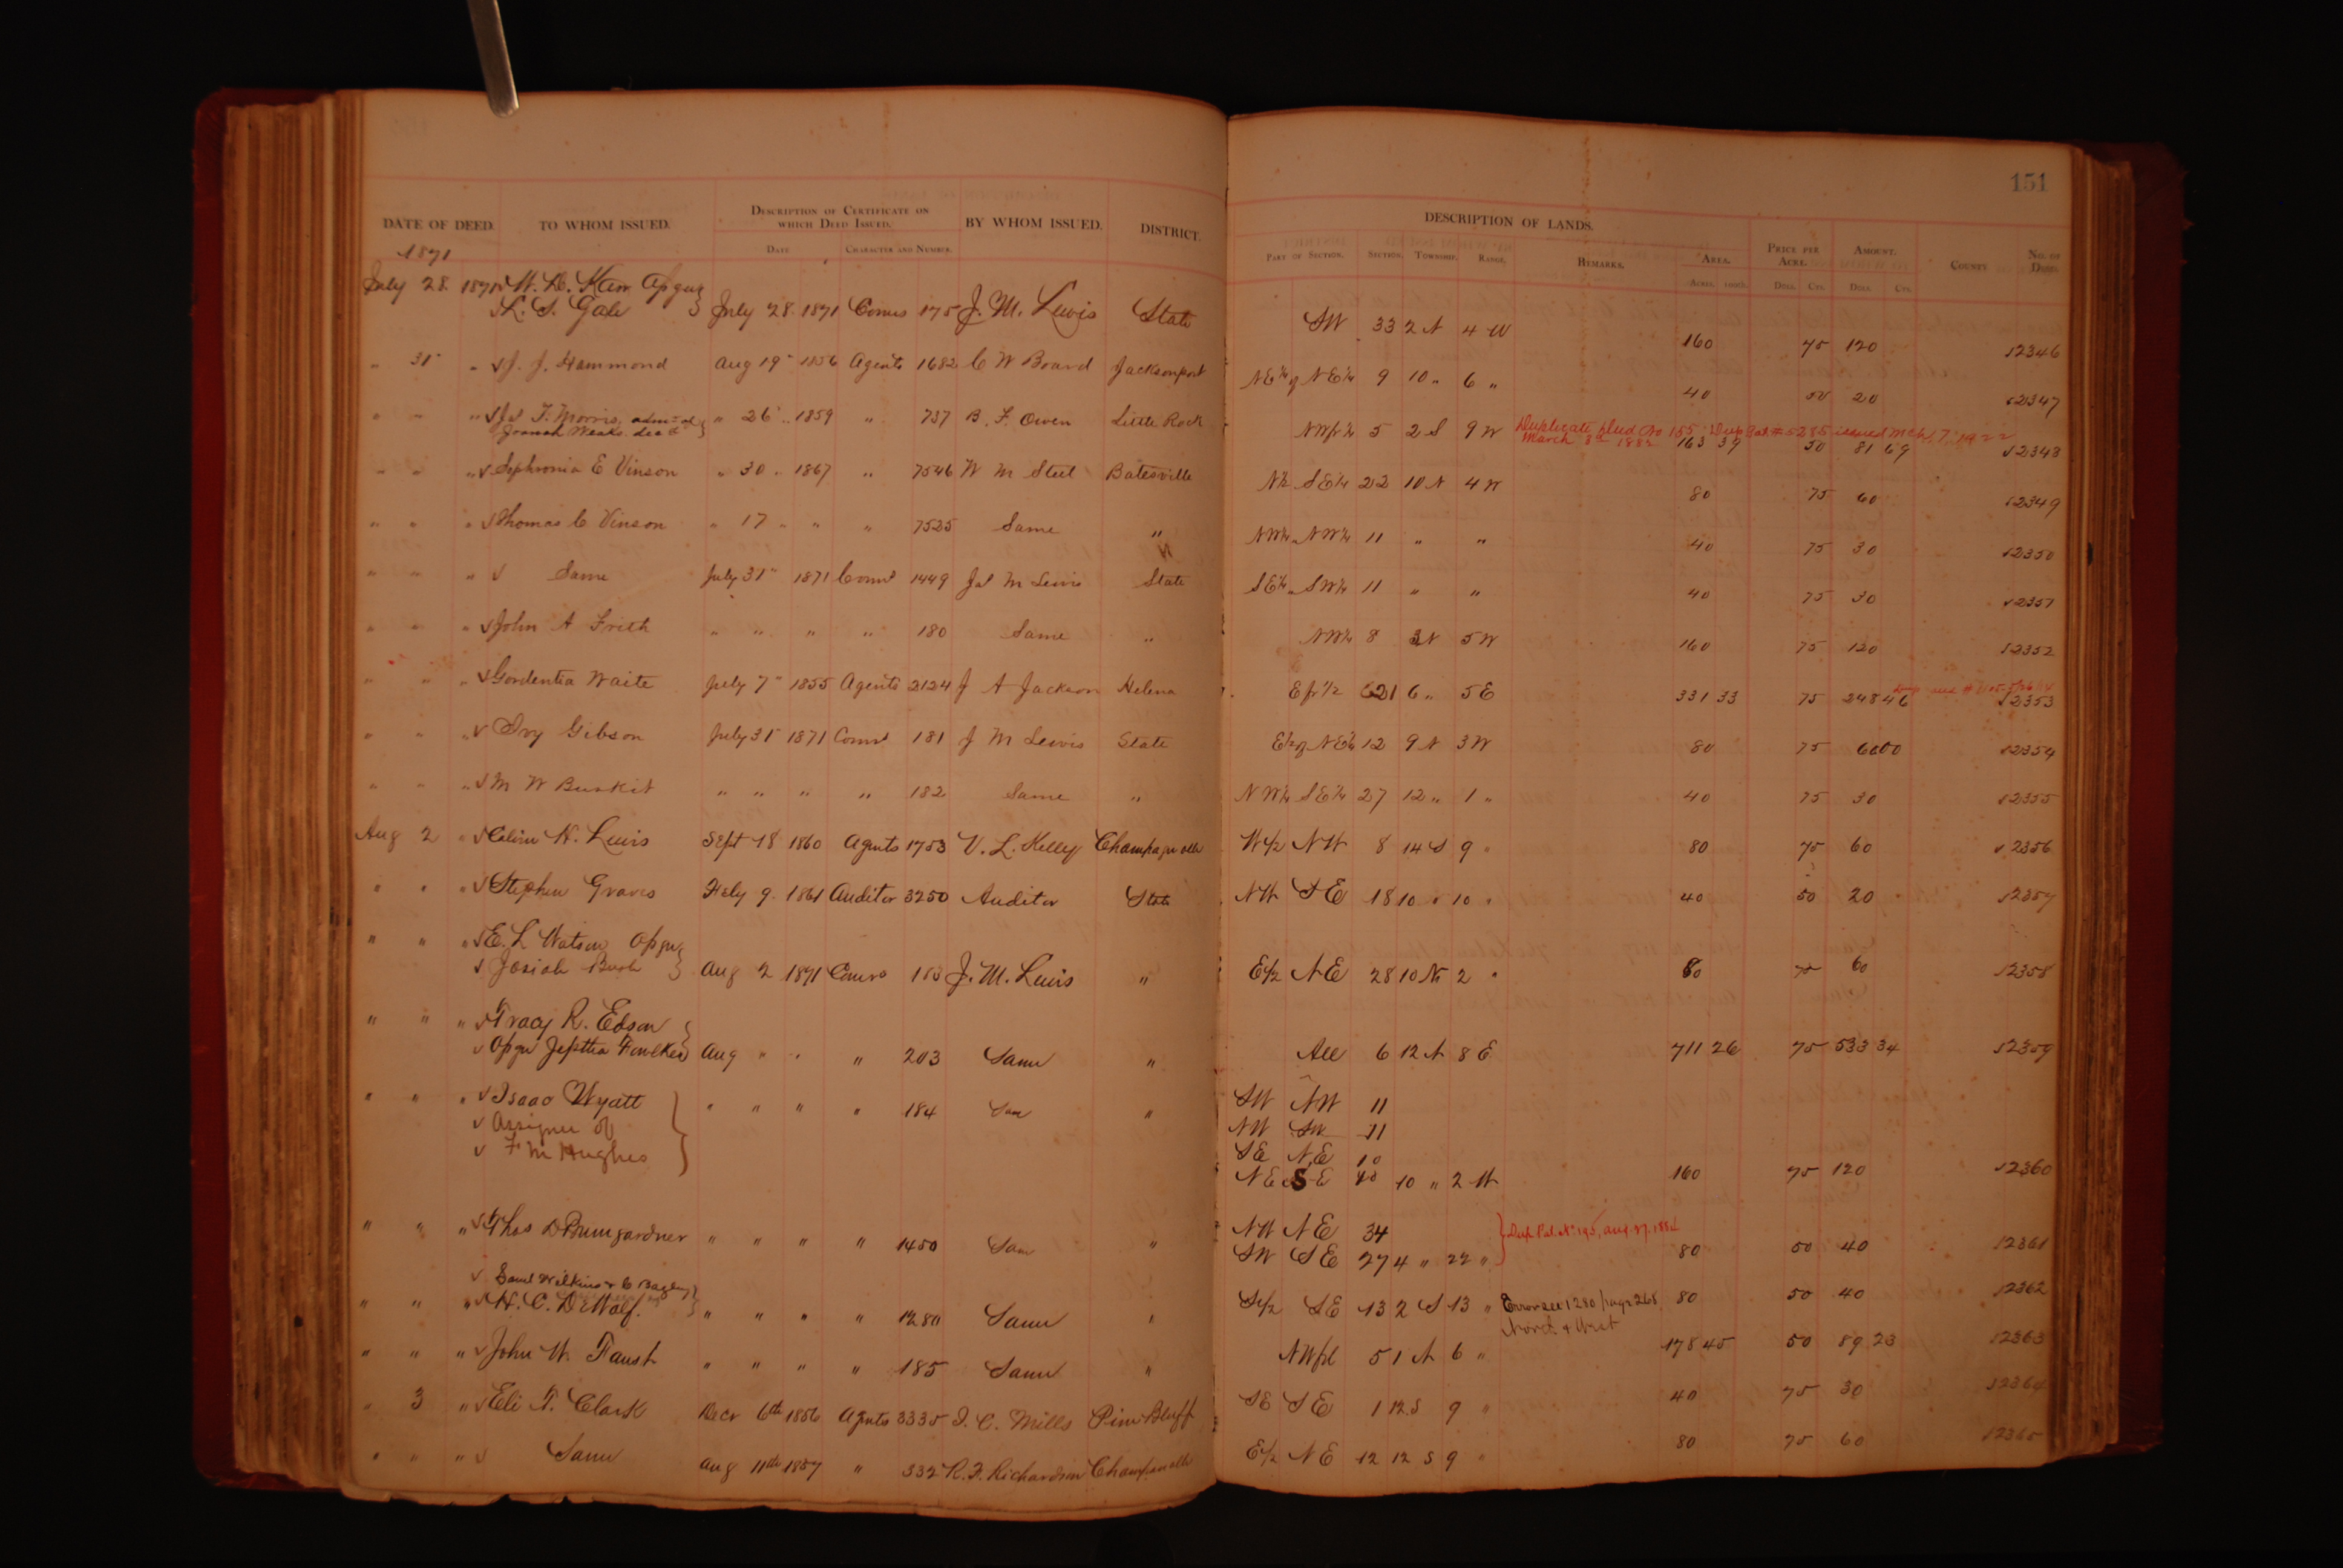 151
DATE OF DEED. TO WHOM ISSUED. DESCRIPTION OF CERTIFICATE ON WHICH DEED ISSUED. BY WHOM ISSUED. DISTRICT. DESCRIPTION OF LANDS. PRICE PER ACRE. AMOUNT. COUNTY NO. OF DEED.
DATE CHARACTER AND NUMBER. PART OF SECTION. SECTION. TOWNSHIP. RANGE. REMARKS. AREA.
ACRES. 100THS. DOLL. CTS. DOLL. CTS.
1871
July 28 1871 Karr
L. S. Gale July 28 1871 175 J. M. Lewis State SW 33 2 N 4 W 160 75 120 12346
" 31 " J. J. Hammond Aug 19 1856 Agents 1682 C W Board Jacksonport NE¼ of NE¼ 9 10 " 6 " 40 50 20 12347
" " " Jas F. Morris, adm of " 26 " 1859 " 737 B. F. Owen Little Rock NWfr¼ 5 2 S 9 W Duplicate March 8 1882 163 37 50 81 69 12348
" " " Sophronia E Vinson " 30 " 1867 " 7546 W M Steel Batesville N½ SE¼ 22 10 N 4 W 80 75 60 12349
" " " Thomas C Vinson " 17 " " " 7525 Same " NW¼ " NW¼ 11 " " 40 75 30 12350
" " " Same July 31 1871 Comr 1449 Jas M Lewis State SE¼ " SW¼ 11 " " 40 75 30 12351
" " " John A Frith " " " " 180 Same " NW¼ 8 3 N 5 W 160 75 120 12352
" " " Gordentia Waite July 7 1855 Agents 2124 J A Jackson Helena E fr ½ 21 6 " 5 E 331 33 75 248 46 12353
" " " Ivy Gibson July 31 1871 Comr 181 J M Lewis State E½ of NE¼ 12 9 N 3 W 80 75 60 00 12354
" " " M W Buskit " " " " 182 Same " NW¼ SE¼ 27 12 " 1 " 40 75 30 12355
Aug 2 " Calvin H. Lewis Sept 18 1860 Agents 1753 V. L. Kelley Champagnolle W½ NW 8 14 S 9 " 80 75 60 12356
" " " Stephen Graves Feby 9 1861 Auditor 3250 Auditor State NW SE 18 10 " 10 " 40 50 20 12357
" " " E. L Watson
Josiah Bush Aug 2 1871 J. M. Lewis " E½ NE 28 10 N 2 " 80 75 60 12358
" " " Tracy R. Edson
Jeptha Fowlkes Aug " " " 203 Same " All 6 12 N 8 E 711 26 75 533 34 12359
" " " Isaac Wyatt " " " " 184 Same " SW NW 11
Assignee of NW SW 11
F M Hughes SE NE 10
NE SE 10 10 " 2 W 160 75 120 12360
" " " Thos D Bumgardner " " " " 1450 Same " NW NE 34
SW SE 27 4 " 22 " Dup Pat. No 195, Aug. 27, 1884 80 50 40 12361
Saml Wilkins & C Bagley
" " " H. C. DeWolf. " " " " 1280 Same " S½ SE 13 2 S 13 " Error see 1280 page 268 North & West 80 50 40 12362
" " " John W. Faust " " " " 185 Same " NWfrl 5 1 N 6 " 178 45 50 89 23 12363
" 3 " Eli T. Clark Decr 6th 1856 Agents 3335 J. C. Mills Pine Bluff SE SE 1 12 S 9 " 40 75 30 12364
" " " Same Aug 11th 1857 " 332 R. F. Richardson Champagnolle E½ NE 12 12 S 9 " 80 75 60 12365